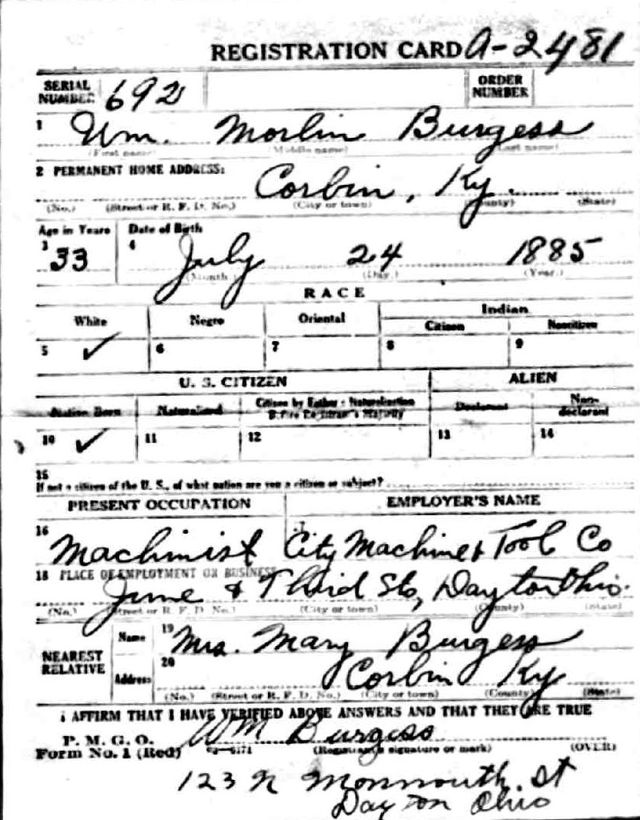 REGISTRATION CARD A-2481
SERIAL NUMBER 692 ORDER NUMBER
1 Wm. Morlin Burgess
(First name) (Middle name) (Last name)
2 PERMANENT HOME ADDRESS:
Corbin, Ky.
(No.) (Street or R. F. D. No.) (City or town) (County) (State)
Age in Years Date of Birth
3 33 4 July 24 1885
(Month) (Day.) (Year.)
RACE
White Negro Oriental Indian
Citizen Noncitizen
5 ✓ 6 7 8 9
U. S. CITIZEN ALIEN
Native Born Naturalized Citizen by Father's Naturalization Before Registrant's Majority Declarant Non-declarant
10 ✓ 11 12 13 14
15
If not a citizen of the U. S., of what nation are you a citizen or subject?
PRESENT OCCUPATION EMPLOYER'S NAME
16 Machinist 17 City Machine & Tool Co
18 PLACE OF EMPLOYMENT OR BUSINESS
& Third Sts, Dayton Ohio.
(No.) (Street or R. F. D. No.) (City or town) (County) (State)
NEAREST RELATIVE
Name 19 Mrs. Mary Burgess
Address 20 Corbin Ky
(No.) (Street or R. F. D. No.) (City or town) (County) (State)
I AFFIRM THAT I HAVE VERIFIED ABOVE ANSWERS AND THAT THEY ARE TRUE
P. M. G. O.
Form No. 1 (Red) Wm Burgess
(Registrant's signature or mark) (OVER)
123 N Monmouth St
Dayton Ohio